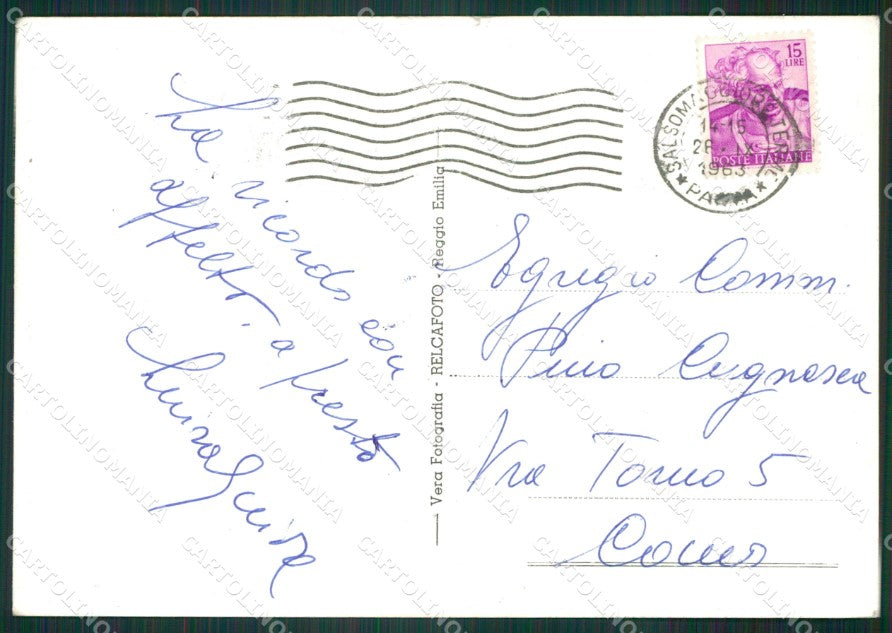 La ricordo con
affetto. a presto
Luisa
15
LIRE
POSTE ITALIANE
SALSOMAGGIORE TERME
14-15
1963
PARMA
Vera Fotografia - RELCAFOTO - Reggio Emilia
Egregio Comm.
Pino
Via Torno 5
Como
CARTOLINOMANIA